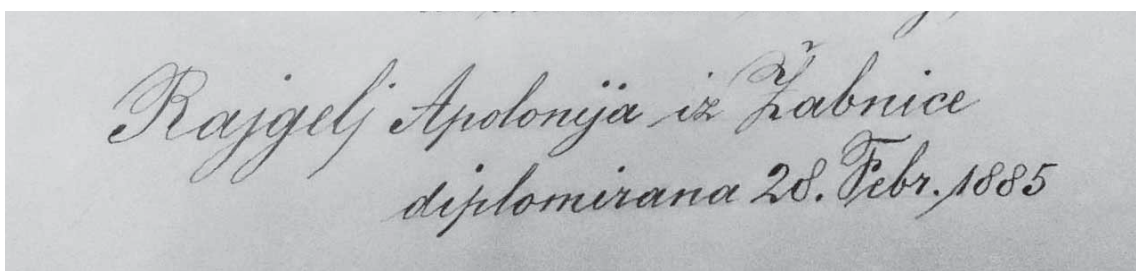 Rajgelj Apolonija iz Žabnice
diplomirana 28. Febr. 1885